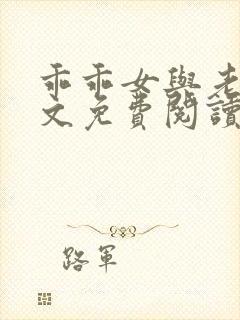 乖乖女與老
文免費閱讀
路軍